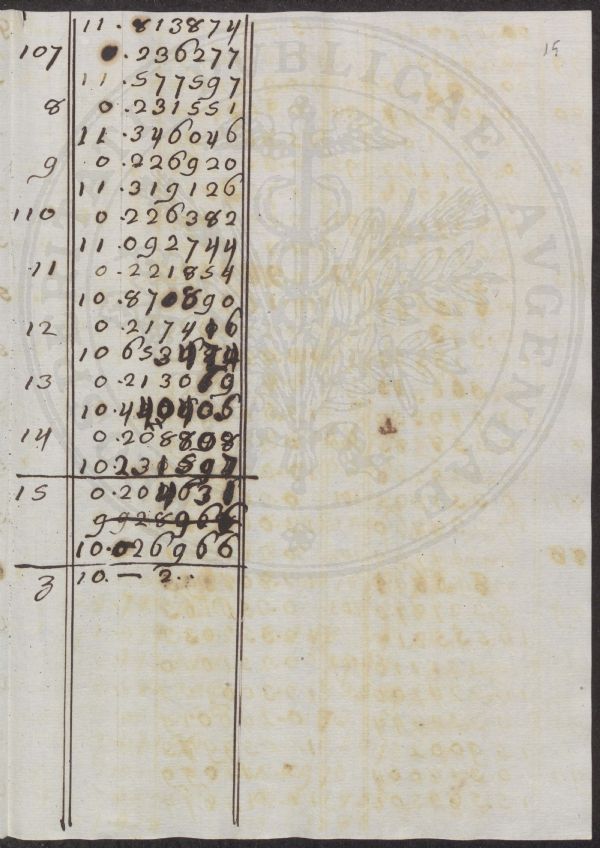 15
11.813874
107 0.236277
11.577597
8 0.231551
11.346046
9 0.226920
11.319126
110 0.226382
11.092744
11 0.221854
10.870890
12 0.217416
10 653474
13 0.213069
10.440405
14 0.208808
10.231597
15 0.204631
9928966
10.026966
3 10.—2..
PUBLICAE AVGENDAE